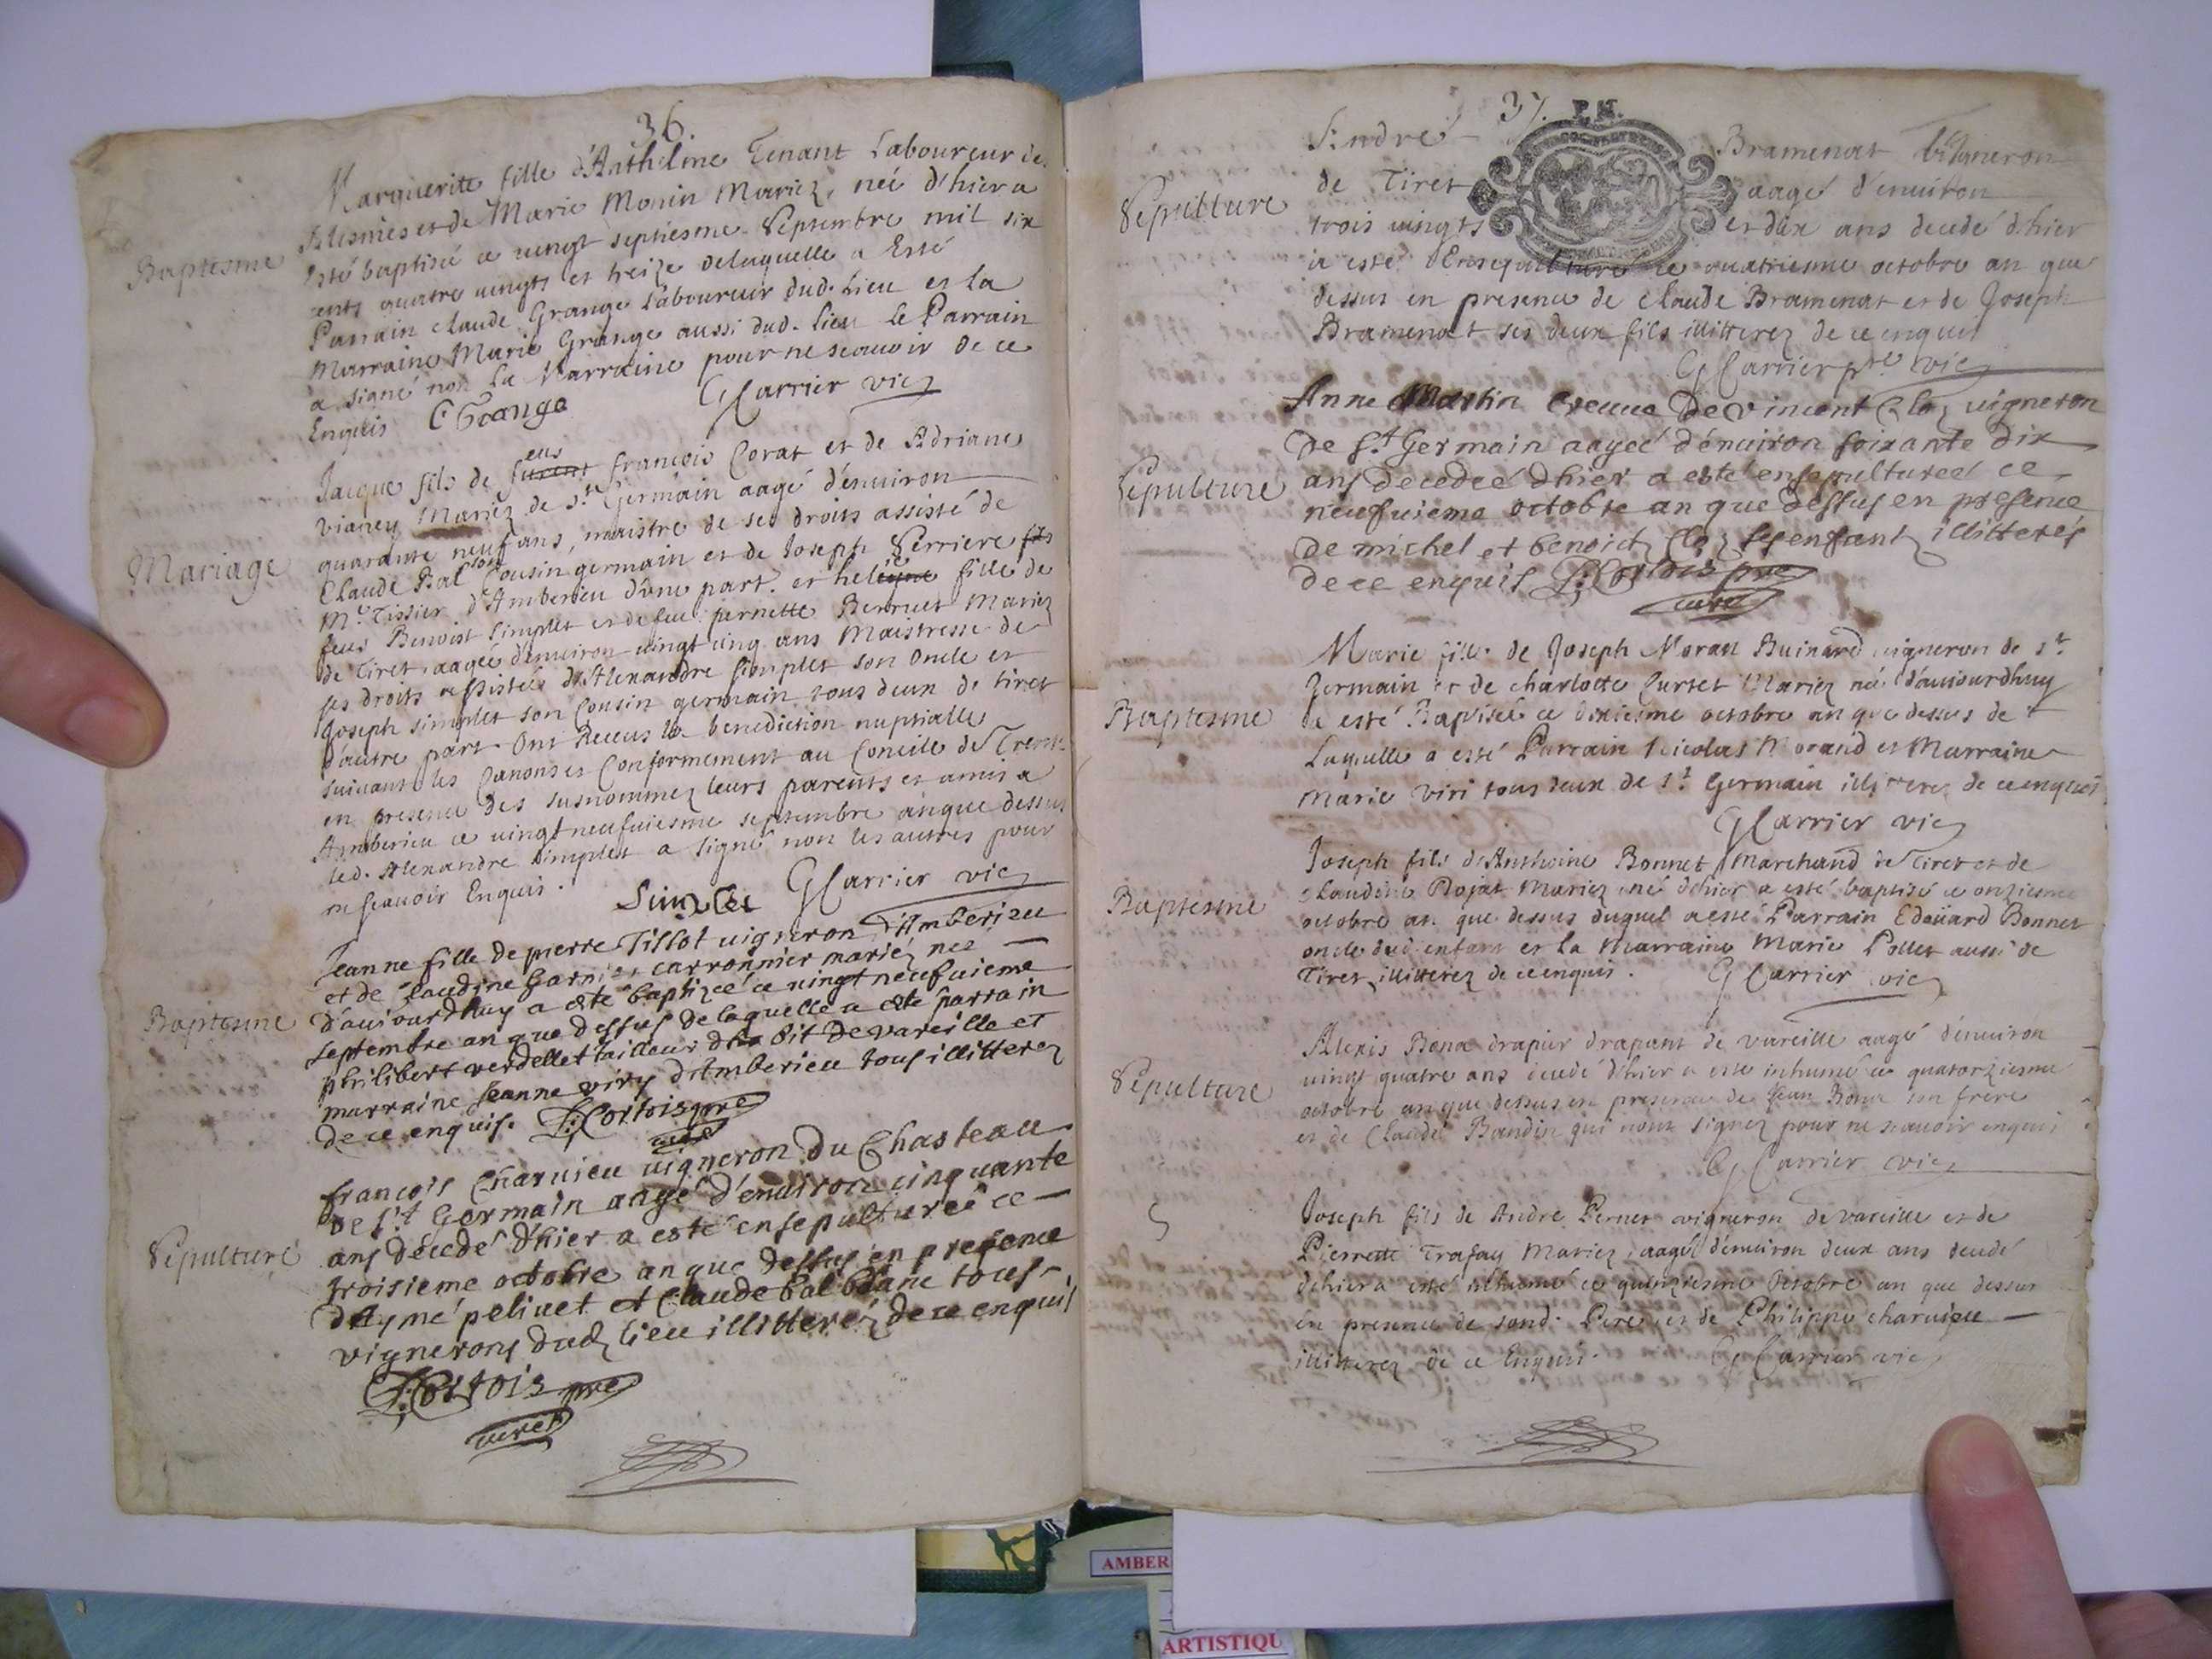 36.
Baptesme
Marguerite fille d'Anthelme Tenant Laboureur des
Alesmes et de Marie Monin Mariez, neé d'hier a
esté baptisée ce vingt septiesme Septembre mil six
cents quatre vingts et treize delaquelle a Esté
Parrain claude Grange Laboureur dud. Lieu et la
Marraine Marie Grange aussi dud. lieu le Parrain
a signé non La Marraine pour ne scauoir de ce
Enquis C Grange GCarrier vic
Mariage
Jacque fils de feus francois Corat et de Adriane
vianey Mariez de St. Germain aagé d'enuiron
quarante neuf ans, maistre de ses droits assisté de
Claude Bal Cousin germain et de Joseph Perriere
Me. Tissier d'Amberieu d'une part. et fille de
feus Benoist Simplet et de feu pernette Berruet Mariez
de Tiret aageé d'enuiron vingt cinq ans Maistresse de
ses droits assistée d'Alexandre Simplet son Oncle et
Joseph simplet son Cousin germain tous deux de tiret
d'autre part. Ont Receus la benediction nuptialle
suivant les Canons et Conformement au Concile de Trente
en presence des susnommez leurs parents et amis a
Amberieu ce vingt neufuiesme septembre an que dessus
led. Alexandre Simplet a signé non les autres pour
ne scauoir Enquis.
Simplet GCarrier vic
Baptesme
Jeanne fille de pierre Tillot uigneron d'Amberieu
et de Claudine Garnier carronnier mariez neé
d'auiourdhuy a esté baptizeé ce uingt neufuieme
septembre an que dessus de laquelle a esté parrain
philibert verdellet tailleur d'ha bit de vareille et
marraine Jeanne viry d'Amberieu tous illitterez
de ce enquis. Cortois pre
curé
Sepulture
francois Charuieu uigneron du Chasteau
de St Germain aagé d'enuiron cinquante
ans décedé d'hier a esté ensepultureé ce
troisieme octobre an que dessus en presence
d'Aymé peliuet et Claude bal blanc tous
vignerons dud lieu illitterez de ce enquis
Cortois pre
curé
37.
Sepulture
Andre Bramenat vigneron
de Tiret aagé d'enuiron
trois vingts et dix ans decedé d'hier
a esté Ensepulturé ce quatriesme octobre an que
dessus en presence de Claude Bramenat et de Joseph
Bramenat ses deux fils illitterez de ce enquis
GCarrier pre vic
Sepulture
Anne Martin veuue de vincent Cloz uigneron
de St Germain aageé d'enuiron soixante dix
ans decedeé dhier a esté ensepultureé ce
neufuieme octobre an que dessus en presence
de michel et benoict Cloz ses enfant illitterés
de ce enquis Cortois pre
curé
Baptesme
Marie fille de Joseph Moran Buinard vigneron de St.
Germain et de charlotte Curtet Mariez neé d'auiourdhuy
a esté Baptiseé ce dixiesme octobre an que dessus de
Laquelle a esté Parrain Nicolas Morand et Marraine
Marie viri tous deux de St. Germain illitterez de ce enquis
GCarrier vic
Baptesme
Joseph fils d'Anthoine Bonnet Marchand de Tiret et de
claudine Rojat Mariez né d'hier a esté baptisé ce onziesme
octobre an que dessus duquel a esté Parrain Edoüard Bonnet
oncle dud. enfant et la Marraine Marie Pollet aussi de
Tiret illitterez de ce enquis. GCarrier vic
Sepulture
Alexis Bona drapier drapant de vareille aagé d'enuiron
vingt quatre ans decedé d'hier a esté inhumé ce quatorziesme
octobre an que dessus en presence de Jean Bona son frere
et de Claude Baudin qui n'ont signez pour ne scauoir enquis
GCarrier vic
Joseph fils de Andre Perner vigneron de vareille et de
Pierrette Trafay Mariez, aagé d'enuiron deux ans decedé
d'hier a esté inhumé ce quinziesme Octobre an que dessus
en presence de sond. Pere et de Philippe charuieu
illitterez de ce Enquis. GCarrier vic
AMBER
ARTISTIQU